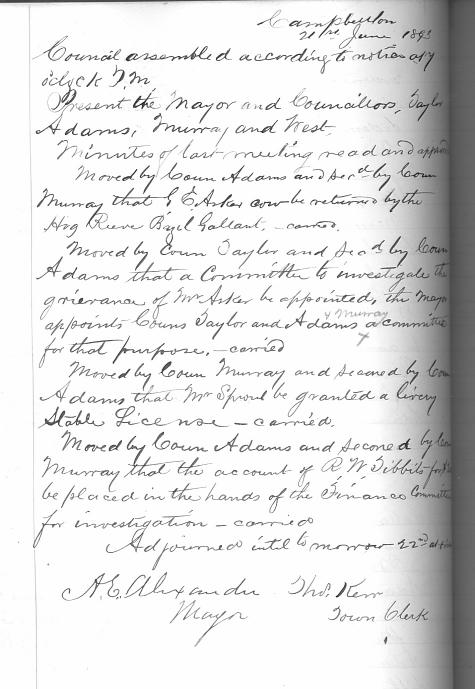 Campbellton
21st June 1893
Council assembled according to notice at 7
o'clock P.M.
Present the Mayor and Councillors, Taylor
Adams, Murray and West.
Minutes of last meeting read and
Moved by Coun Adams and secd by Coun
Murray that G E Asker cow be returned by the
Hog Reeve Bazil Gallant, – carried.
Moved by Coun Taylor and secd by Coun
Adams that a Committee to investigate the
grievance of Mr Asker be appointed, the Mayor
appoints Couns Taylor and Adams & Murray a committee
for that purpose, – carried
Moved by Coun Murray and seconed by Coun
Adams that Mr Sproul be granted a livery
Stable License – carried.
Moved by Coun Adams and seconed by Coun
Murray that the account of R. W. Tibbits
be placed in the hands of the Finance Committee
for investigation – carried
Adjourned until to morrow 22nd at
A. E. Alexander Thos. Kerr
Mayor Town Clerk